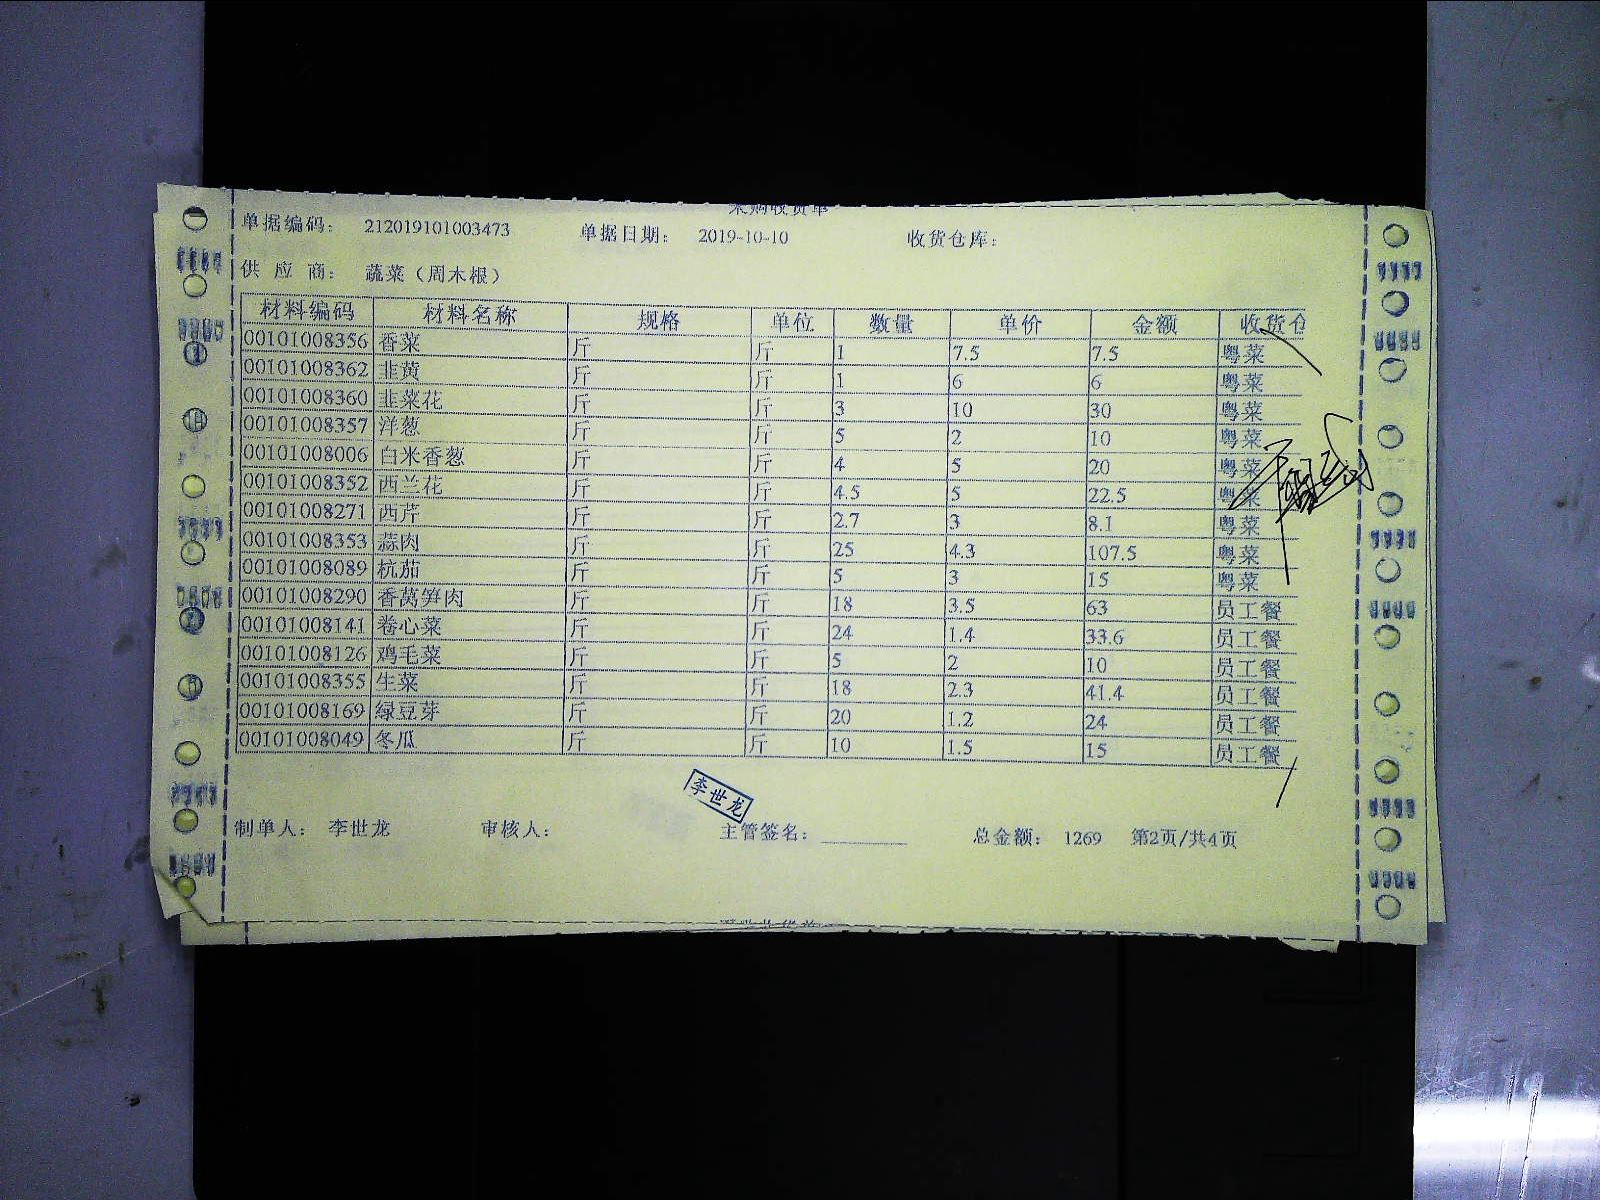 采购收货单
单据编码： 212019101003473 单据日期： 2019-10-10 收货仓库：
供 应 商： 蔬菜（周木根）
材料编码 材料名称 规格 单位 数量 单价 金额 收货仓
00101008356 香菜 斤 斤 1 7.5 7.5 粤菜
00101008362 韭黄 斤 斤 1 6 6 粤菜
00101008360 韭菜花 斤 斤 3 10 30 粤菜
00101008357 洋葱 斤 斤 5 2 10 粤菜
00101008006 白米香葱 斤 斤 4 5 20 粤菜
00101008352 西兰花 斤 斤 4.5 5 22.5 粤菜
00101008271 西芹 斤 斤 2.7 3 8.1 粤菜
00101008353 蒜肉 斤 斤 25 4.3 107.5 粤菜
00101008089 杭茄 斤 斤 5 3 15 粤菜
00101008290 香莴笋肉 斤 斤 18 3.5 63 员工餐
00101008141 卷心菜 斤 斤 24 1.4 33.6 员工餐
00101008126 鸡毛菜 斤 斤 5 2 10 员工餐
00101008355 生菜 斤 斤 18 2.3 41.4 员工餐
00101008169 绿豆芽 斤 斤 20 1.2 24 员工餐
00101008049 冬瓜 斤 斤 10 1.5 15 员工餐
李世龙
制单人： 李世龙 审核人： 主管签名： 总金额： 1269 第2页/共4页